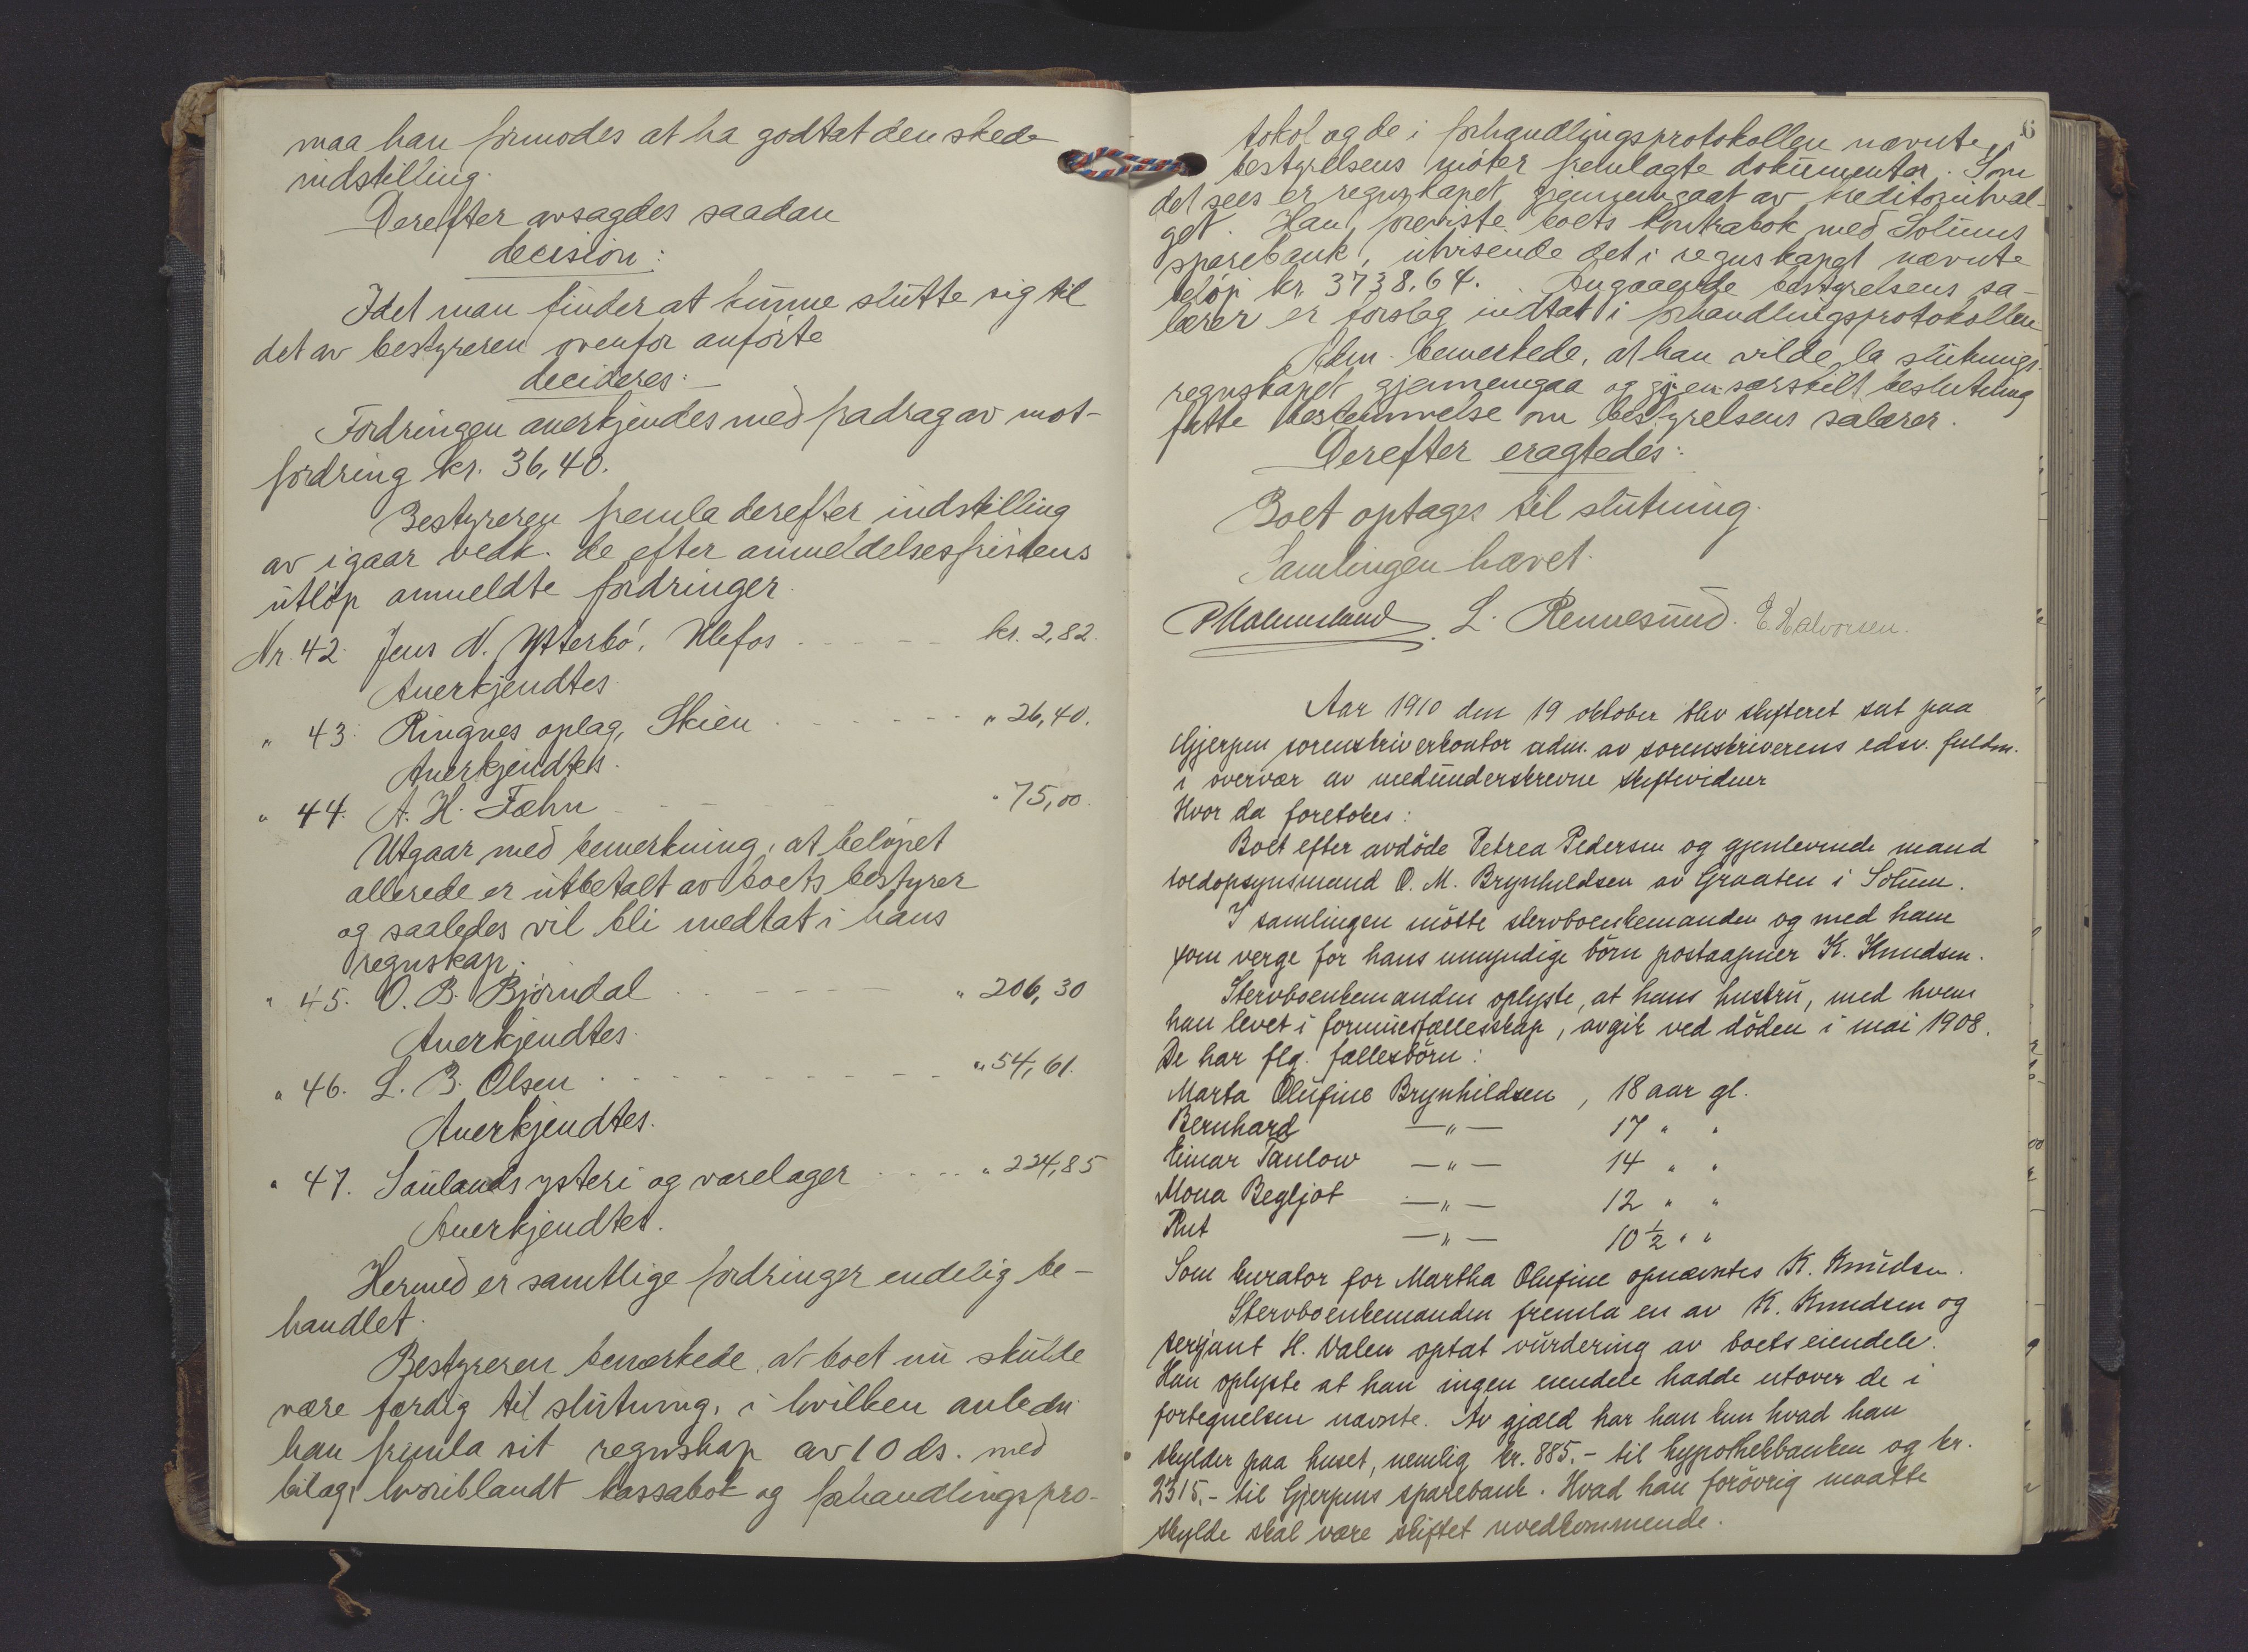 maa han formodes at ha godtat den skede
indstilling.
Derefter avsagdes saadan
decision:
Idet man finder at kunne slutte sig til
det av bestyreren ovenfor anførte
decideres:
Fordringen anerkjendes med fradrag av mot-
fordring kr. 36,40.
Bestyreren fremla derefter indstilling
av igaar vedk. de efter anmeldelsesfristens
utløp anmeldte fordringer.
Nr. 42. Jens N. Ytterbö, Ulefos - - - - kr. 2,82.
Anerkjendtes.
" 43. Ringnes oplag, Skien - - - - " 26,40.
Anerkjendtes.
" 44. A. H. Fæhn - - - - " 75,00.
Utgaar med bemerkning, at beløpet
allerede er utbetalt av boets bestyrer
og saaledes vil bli medtat i hans
regnskap.
" 45. O. B. Bjørndal - - - - " 206,30
Anerkjendtes.
" 46. L. B. Olsen - - - - " 54,61.
Anerkjendtes.
" 47. Saulands ysteri og varelager - - - - " 224,85
Anerkjendtes.
Hermed er samtlige fordringer endelig be-
handlet.
Bestyreren bemerkede, at boet nu skulde
være færdig til slutning, i hvilken anledn.
han fremla sit regnskap av 10 ds. med
bilag, hvoriblandt kassabok og forhandlingspro-
6
tokol og de i forhandlingsprotokollen nævnte,
bestyrelsens møter fremlagte dokumenter. Som
det sees er regnskapet gjennemgaat av kreditorutval-
get. Han foreviste boets kontrabok med Solums
sparebank, utvisende det i regnskapet nævnte
beløp kr. 3738,64. Angaaende bestyrelsens sa-
lærer er forslag indtat i forhandlingsprotokollen
Adm. bemerkede, at han vilde la slutnings-
regnskapet gjennemgaa og ved en særskilt beslutning
fatte bestemmelse om bestyrelsens salærer.
Derefter eragtedes:
Boet optages til slutning.
Samlingen hævet.
L. Rennesund. E. Halvorsen.
Aar 1910 den 19 oktober blev skifteret sat paa
Gjerpen sorenskriverkontor adm. av sorenskriverens edsv. fuldm.
i overvær av medunderskrevne skiftevidner
Hvor da foretokes:
Boet efter avdöde Petrea Pedersen og gjenlevende mand
toldopsynsmand O. M. Brynhildsen av Graaten i Solum.
I samlingen mötte stervboenkemanden og med ham
som verge for hans umyndige börn postaapner K. Knudsen.
Stervboenkemanden oplyste, at hans hustru, med hvem
han levet i formuesfællesskap, avgik ved döden i mai 1908.
De har flg. fællesbörn:
Marta Olufine Brynhildsen, 18 aar gl.
Bernhard —"— 17 " "
Einar Taulow —"— 14 " "
Mona Begljot —"— 12 " "
Rut —"— 10 1/2 " "
Som kurator for Martha Olufine opnævntes K. Knudsen.
Stervboenkemanden fremla en av K. Knudsen og
serjant H. Valen optat vurdering av boets eiendele.
Han oplyste at han ingen eiendele hadde utover de i
fortegnelsen nævnte. Av gjæld har han kun hvad han
skylder paa huset, nemlig kr. 885.- til hypothekbanken og kr.
2315.- til Gjerpens sparebank. Hvad han forövrig maatte
skylde skal være skiftet uvedkommende.